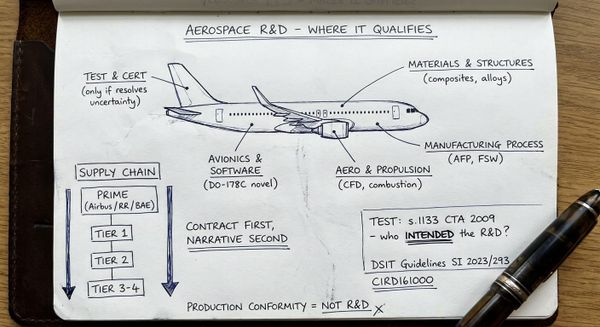 AEROSPACE R&D – WHERE IT QUALIFIES
TEST & CERT
(only if resolves
uncertainty)
MATERIALS & STRUCTURES
(composites, alloys)
MANUFACTURING PROCESS
(AFP, FSW)
AVIONICS &
SOFTWARE
(DO-178C novel)
AERO & PROPULSION
(CFD, combustion)
SUPPLY CHAIN
PRIME
(Airbus/RR/BAE)
TIER 1
TIER 2
TIER 3-4
CONTRACT FIRST,
NARRATIVE SECOND
TEST: s.1133 CTA 2009
- who INTENDED the R&D?
DSIT Guidelines SI 2023/293
CIRD161000
PRODUCTION CONFORMITY = NOT R&D X